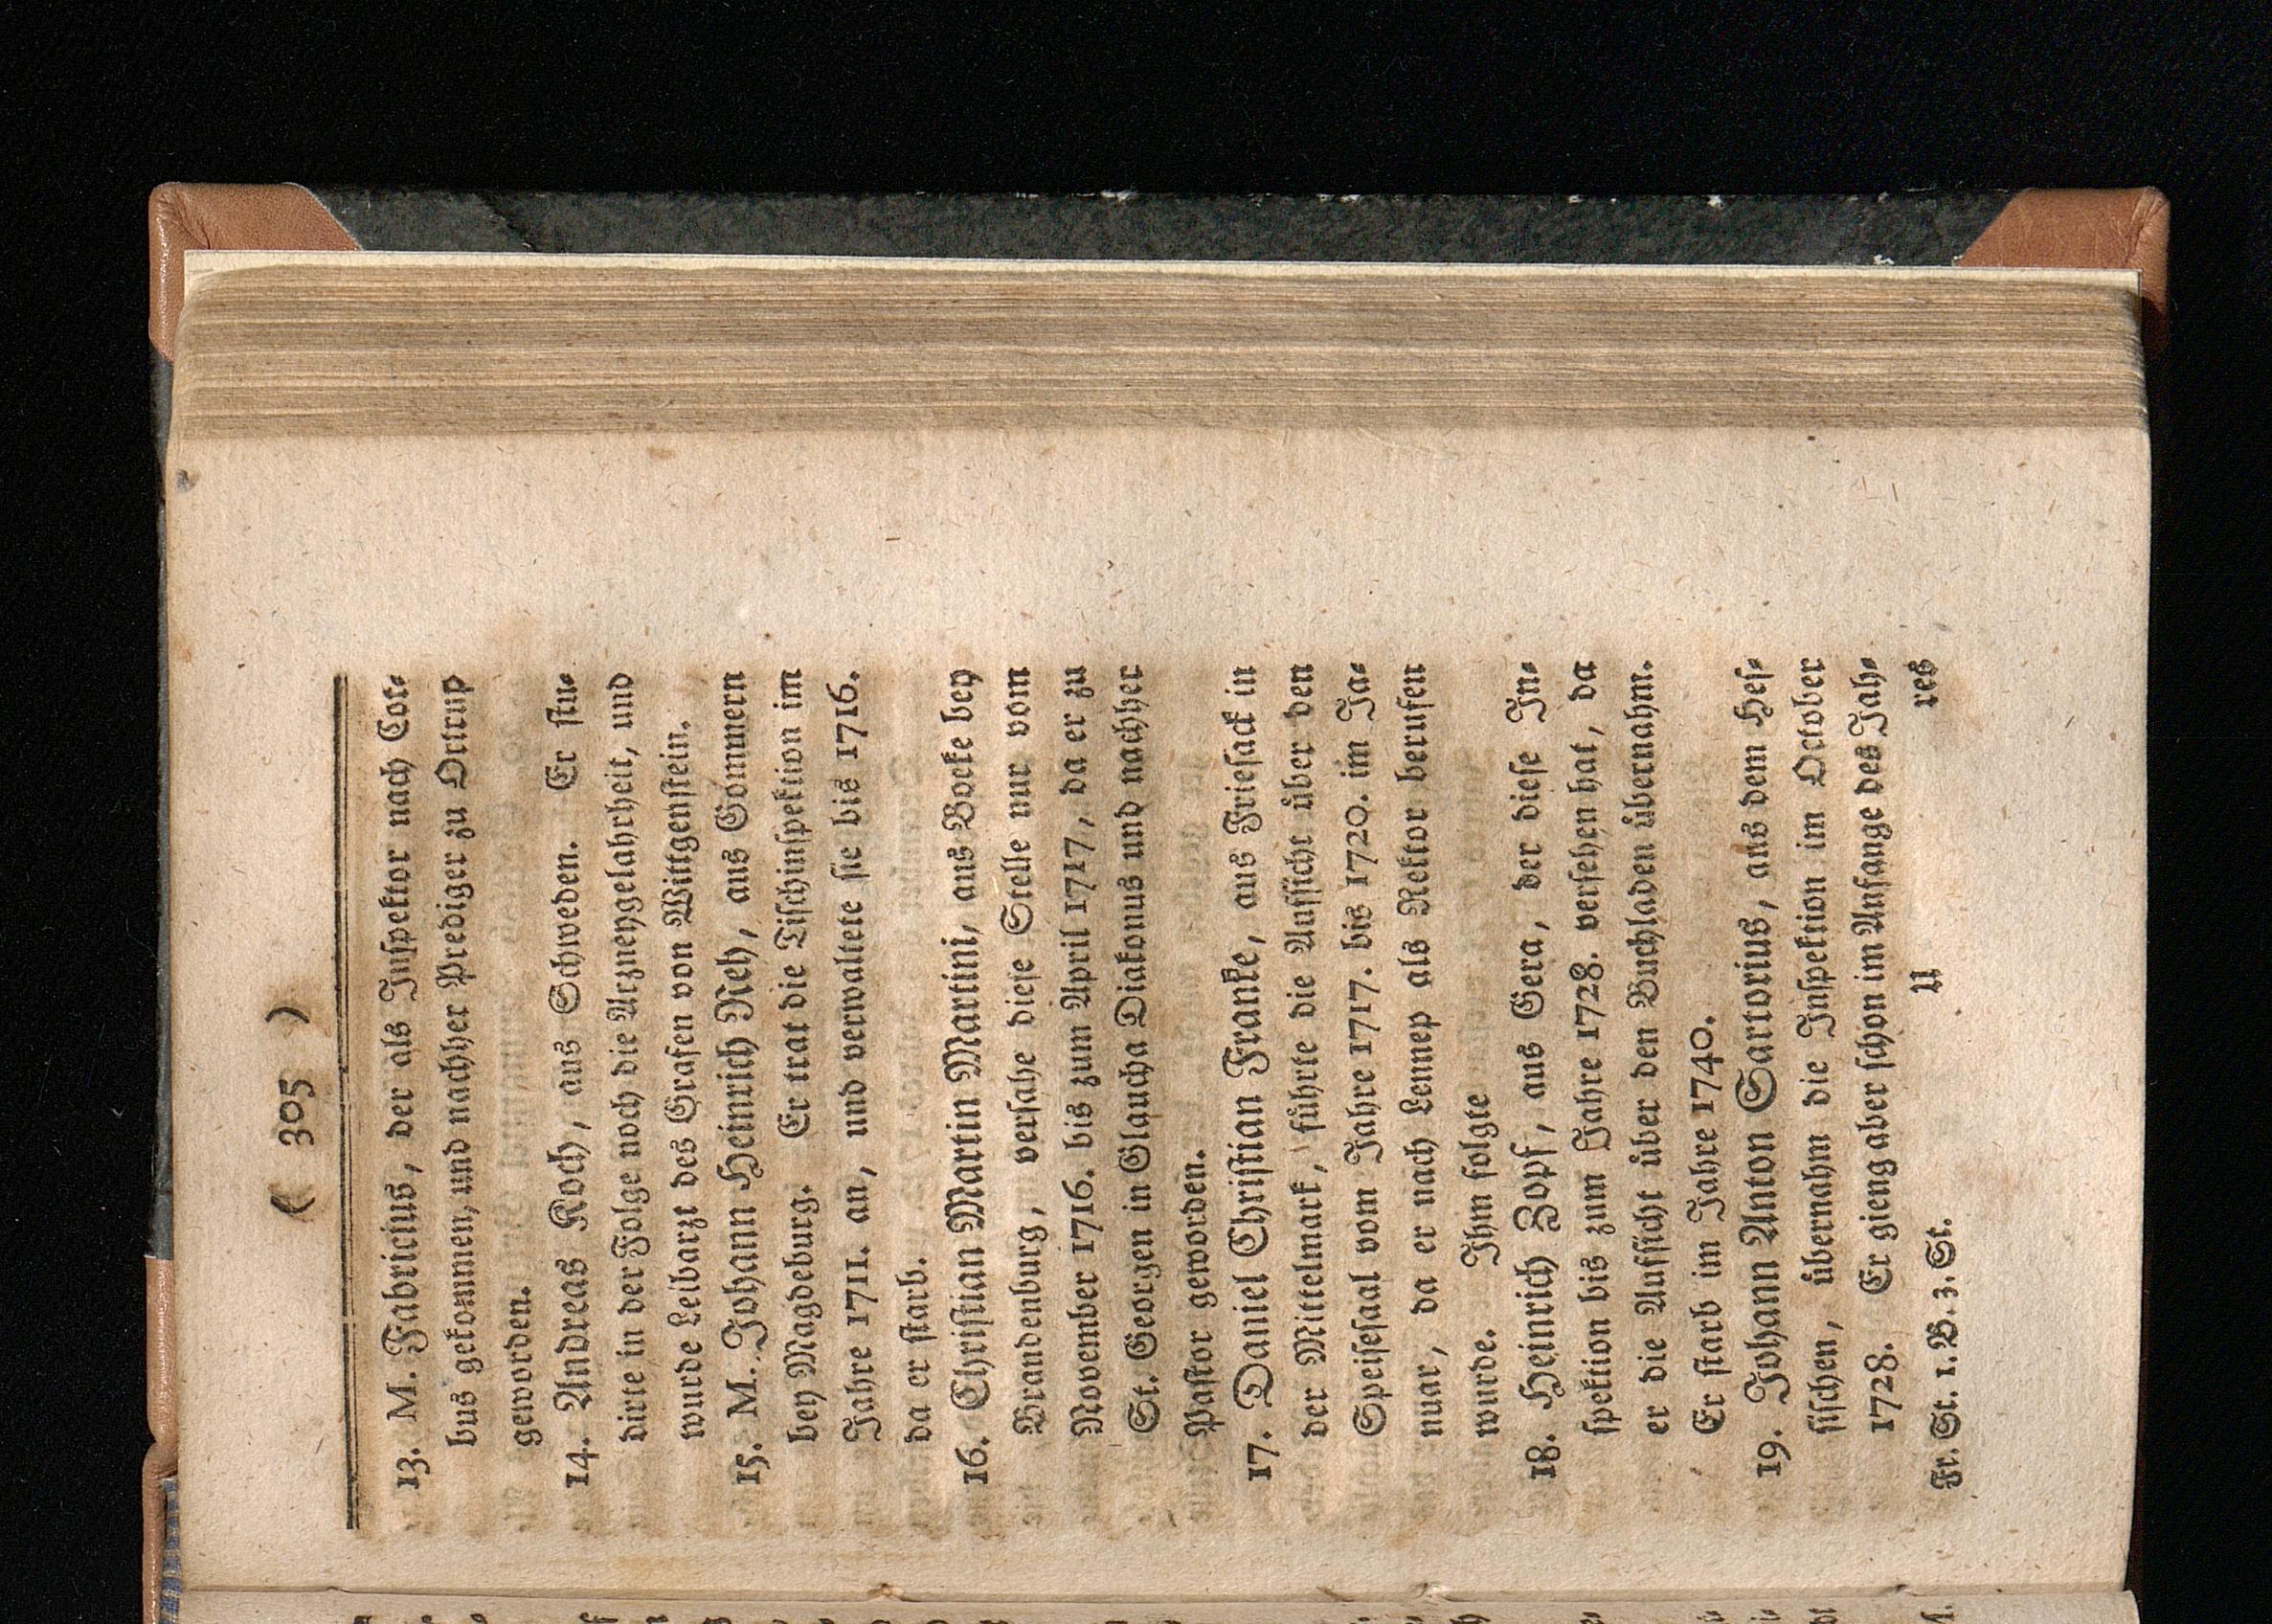 ( 305 )
13. M. Fabricius, der als Inspektor nach Cot-
bus gekommen, und nachher Prediger zu Ortrup
geworden.
14. Andreas Koch, aus Schweden. Er stu-
dirte in der Folge noch die Arzneygelahrheit, und
wurde Leibarzt des Grafen von Wittgenstein.
15. M. Johann Heinrich Neh, aus Gommern
bey Magdeburg. Er trat die Tischinspektion im
Jahre 1711. an, und verwaltete sie bis 1716.
da er starb.
16. Christian Martin Martini, aus Bocke bey
Brandenburg, versahe diese Stelle nur vom
November 1716. bis zum April 1717, da er zu
St. Georgen in Glaucha Diakonus und nachher
Pastor geworden.
17. Daniel Christian Franke, aus Friesack in
der Mittelmark, führte die Aufsicht über den
Speisesaal vom Jahre 1717. bis 1720. im Ja-
nuar, da er nach Lennep als Rektor berufen
wurde. Ihm folgte
18. Heinrich Zopf, aus Gera, der diese In-
spektion bis zum Jahre 1728. versehen hat, da
er die Aufsicht über den Buchladen übernahm.
Er starb im Jahre 1740.
19. Johann Anton Sartorius, aus dem Hes-
sischen, übernahm die Inspektion im October
1728. Er gieng aber schon im Anfange des Jah-
Fr. St. 1. B. 3. St. U res